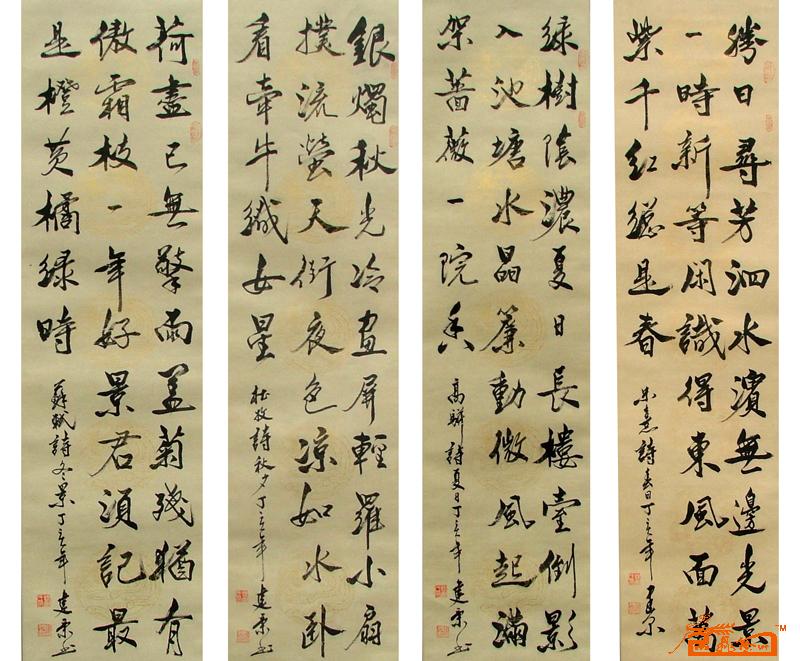 勝日尋芳泗水濱無邊光景
一時新等閑識得東風面萬
紫千紅總是春
朱熹詩春日丁亥年
綠樹陰濃夏日長樓臺倒影
入池塘水晶簾動微風起滿
架薔薇一院香
高駢詩夏日丁亥年
銀燭秋光冷畫屏輕羅小扇
撲流螢天街夜色涼如水卧
看牽牛織女星
杜牧詩秋夕丁亥年
荷盡已無擎雨蓋菊殘猶有
傲霜枝一年好景君須記最
是橙黄橘綠時
蘇軾詩冬景丁亥年